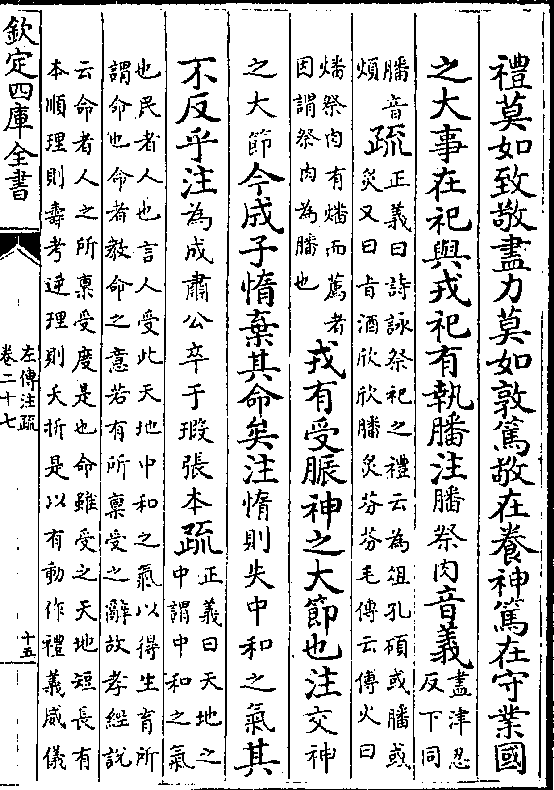 禮莫如致敬盡力莫如敦篤敬在養神篤在守業國
之大事在祀與戎祀有執膰注膰祭肉音義盡津忍
反下同
膰音
煩疏正義曰詩詠祭祀之禮云為俎孔碩或膰或
炙又曰旨酒欣欣膰炙芬芬毛傳云傅火曰
燔祭肉有燔而薦者
因謂祭肉為膰也戎有受脤神之大節也注交神
之大節今成子惰棄其命矣注惰則失中和之氣其
不反乎注為成肅公卒于瑕張本疏正義曰天地之
中謂中和之氣
也民者人也言人受此天地中和之氣以得生育所
謂命也命者教命之意若有所稟受之辭故孝經說
云命者人之所稟受度是也命雖受之天地短長有
本順理則壽考逆理則夭折是以有動作禮義威儀
欽定四庫全書
左傳注疏
卷二十七
十五